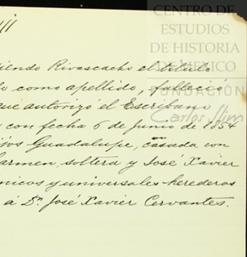 CENTRO DE
ESTUDIOS
DE HISTORIA
DE MÉXICO
FUNDACIÓN
Carlos Slim
iendo Rivascacho el título
o como apellido, falleció
que autorizó el Escribano
con fecha 6 de junio de 1854
jos Guadalupe, casada con
armen, soltera y José Xavier
nicos y universales herederos
á Dn. José Xavier Cervantes.